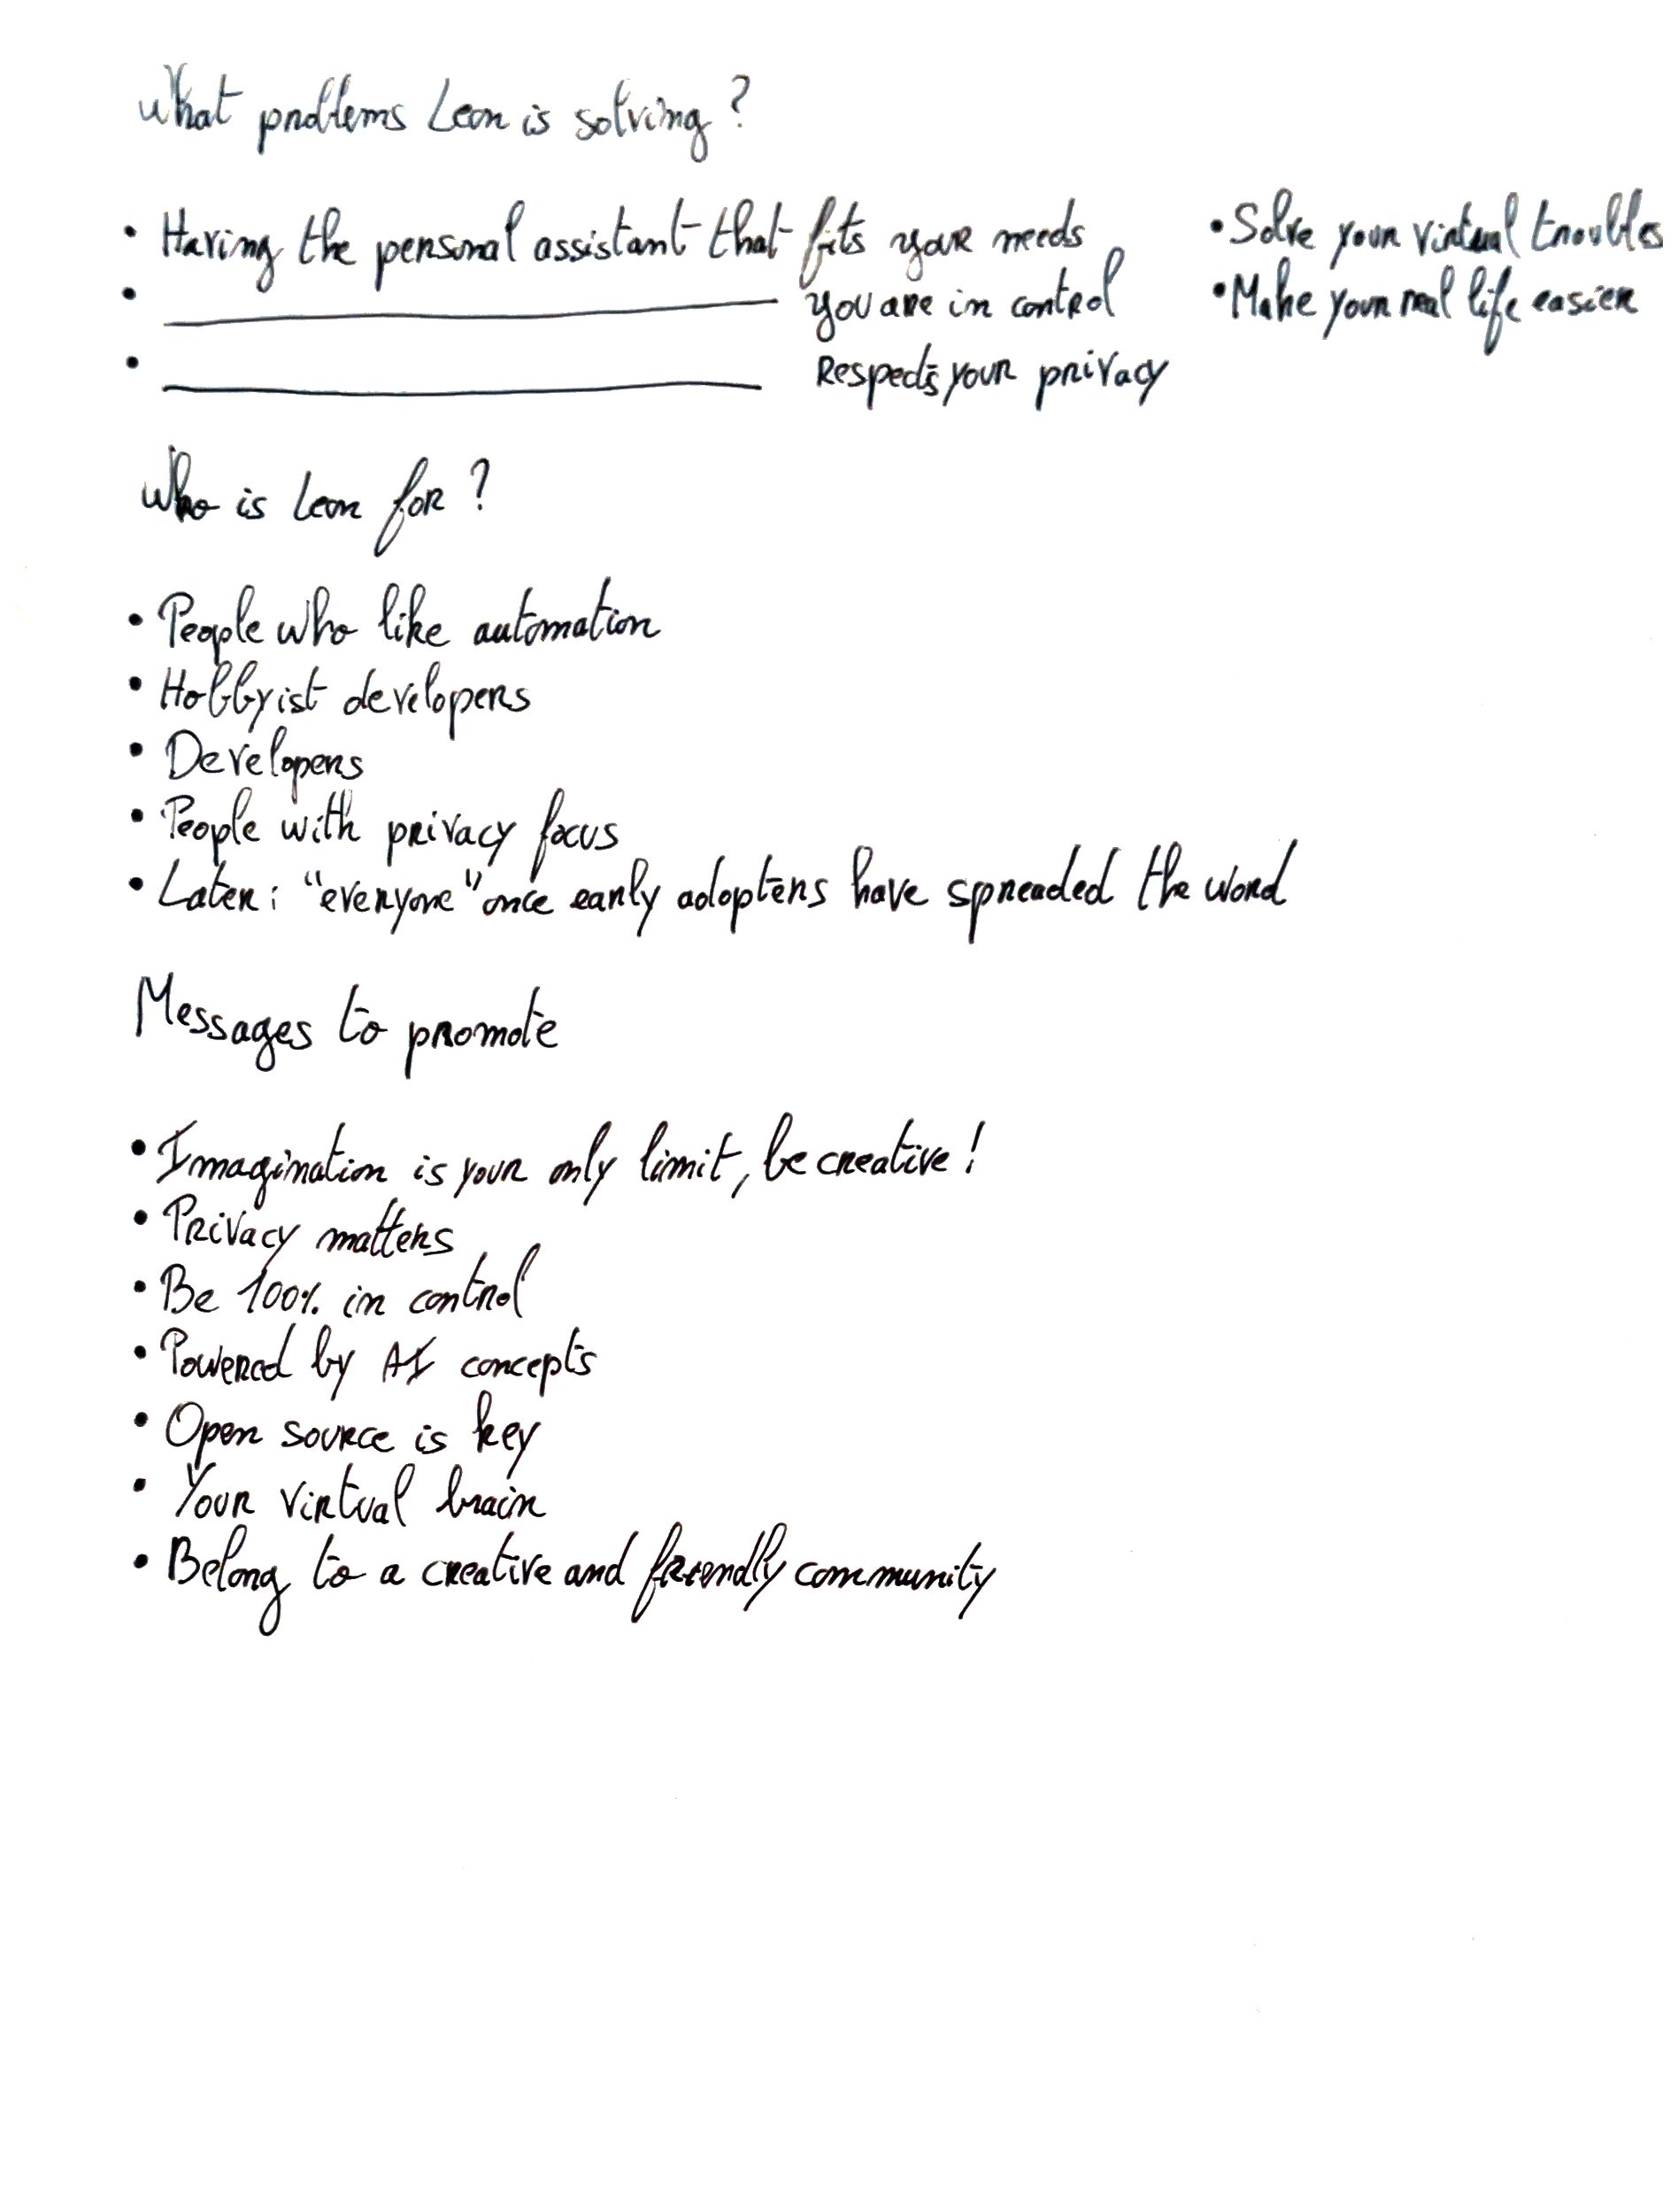 What problems Leon is solving ?
• Having the personal assistant that fits your needs
• ____________ you are in control
• ____________ Respects your privacy
• Solve your virtual troubles
• Make your real life easier
Who is Leon for ?
• People who like automation
• Hobbyist developers
• Developers
• People with privacy focus
• Later : "everyone" once early adopters have spreaded the word
Messages to promote
• Imagination is your only limit, be creative !
• Privacy matters
• Be 100% in control
• Powered by AI concepts
• Open source is key
• Your virtual brain
• Belong to a creative and friendly community